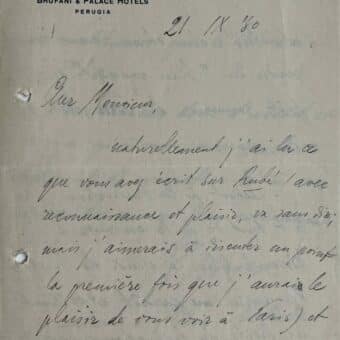 BRUFANI & PALACE HOTELS
PERUGIA
21 IX 30
Cher Monsieur,
naturellement j'ai lu ce
que vous avez écrit sur (avec
reconnaissance et plaisir, va sans dire,
mais j'aimerais à discuter un point
la première fois que j'aurais le
plaisir de vous voir à Paris) et